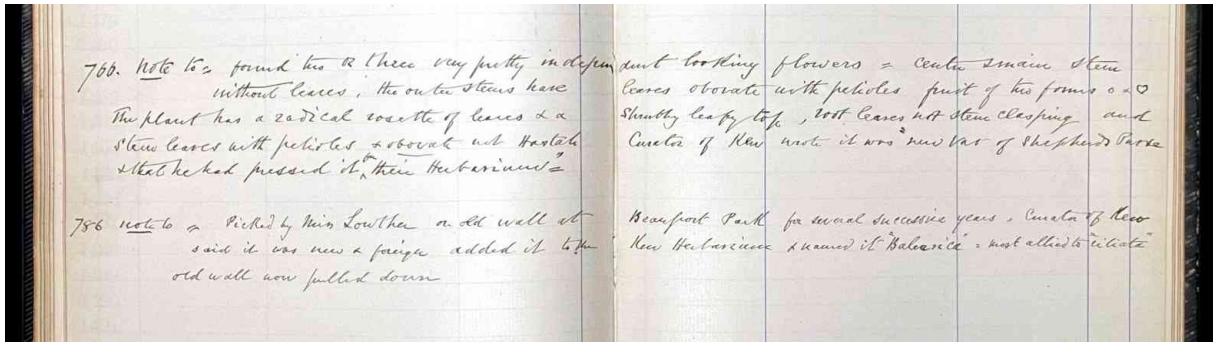 766. Note to = found two or three very pretty independent looking flowers = centre & main stem
without leaves, the outer stems have leaves obovate with petioles fruit of two forms o & ♡
The plant has a radical rosette of leaves & a shrubby leafy top, root leaves not stem clasping and
stem leaves with petioles & obovate not Hastate Curator of Kew wrote it was "new var of Shepherds Purse
& that he had pressed it for their Herbarium" =
786 note to = Picked by Miss Lowther on old wall at Beaufort Park for several successive years. Curator of Kew
said it was new & foreign added it to the Kew Herbarium & named it "Balearica" = most allied to "ciliata"
old wall now pulled down